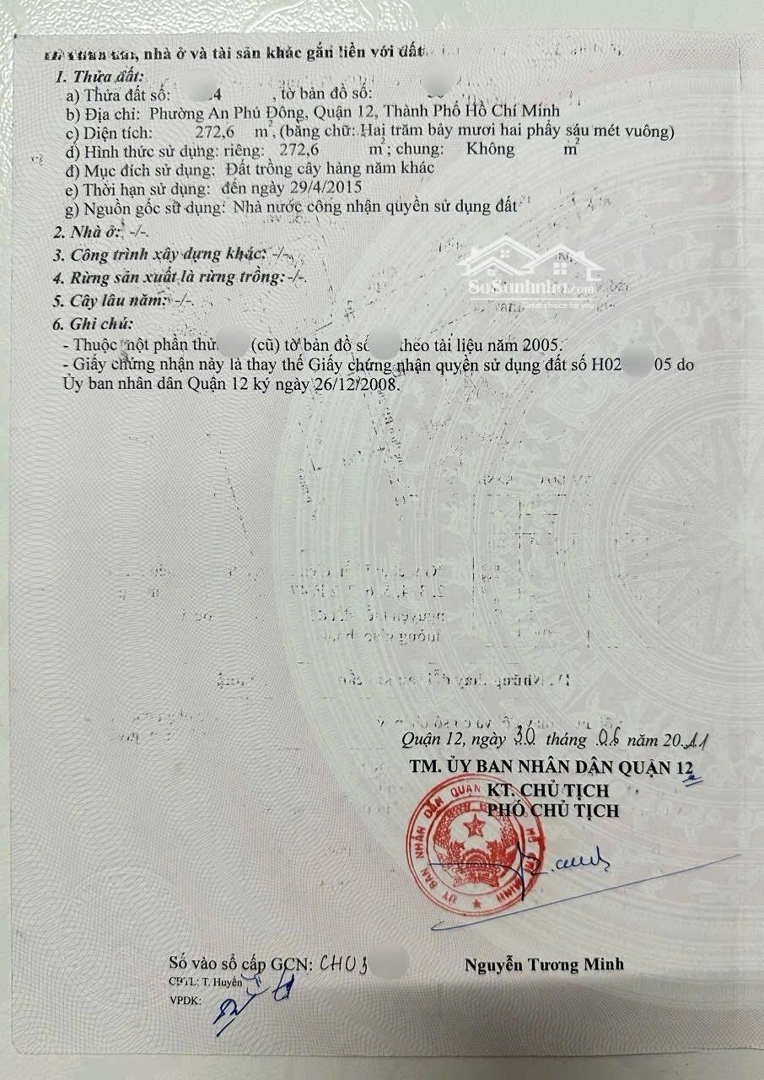 nhà ở và tài sản khác gắn liền với đất
1. Thửa đất:
a) Thửa đất số: .4 , tờ bản đồ số:
b) Địa chỉ: Phường An Phú Đông, Quận 12, Thành Phố Hồ Chí Minh
c) Diện tích: 272,6 m², (bằng chữ: Hai trăm bảy mươi hai phẩy sáu mét vuông)
d) Hình thức sử dụng: riêng: 272,6 m²; chung: Không m²
đ) Mục đích sử dụng: Đất trồng cây hàng năm khác
e) Thời hạn sử dụng: đến ngày 29/4/2015
g) Nguồn gốc sử dụng: Nhà nước công nhận quyền sử dụng đất
2. Nhà ở: -/-.
3. Công trình xây dựng khác: -/-.
4. Rừng sản xuất là rừng trồng: -/-.
5. Cây lâu năm: -/-.
SoSanhnha.com
6. Ghi chú:
- Thuộc một phần thửa (cũ) tờ bản đồ số theo tài liệu năm 2005.
- Giấy chứng nhận này là thay thế Giấy chứng nhận quyền sử dụng đất số H02 05 do
Ủy ban nhân dân Quận 12 ký ngày 26/12/2008.
Quận 12, ngày 30 tháng 06 năm 2011
TM. ỦY BAN NHÂN DÂN QUẬN 12
KT. CHỦ TỊCH
PHÓ CHỦ TỊCH
ỦY BAN NHÂN DÂN QUẬN
Số vào sổ cấp GCN: CH03
Nguyễn Tương Minh
CBTL: T. Huyền
VPDK: